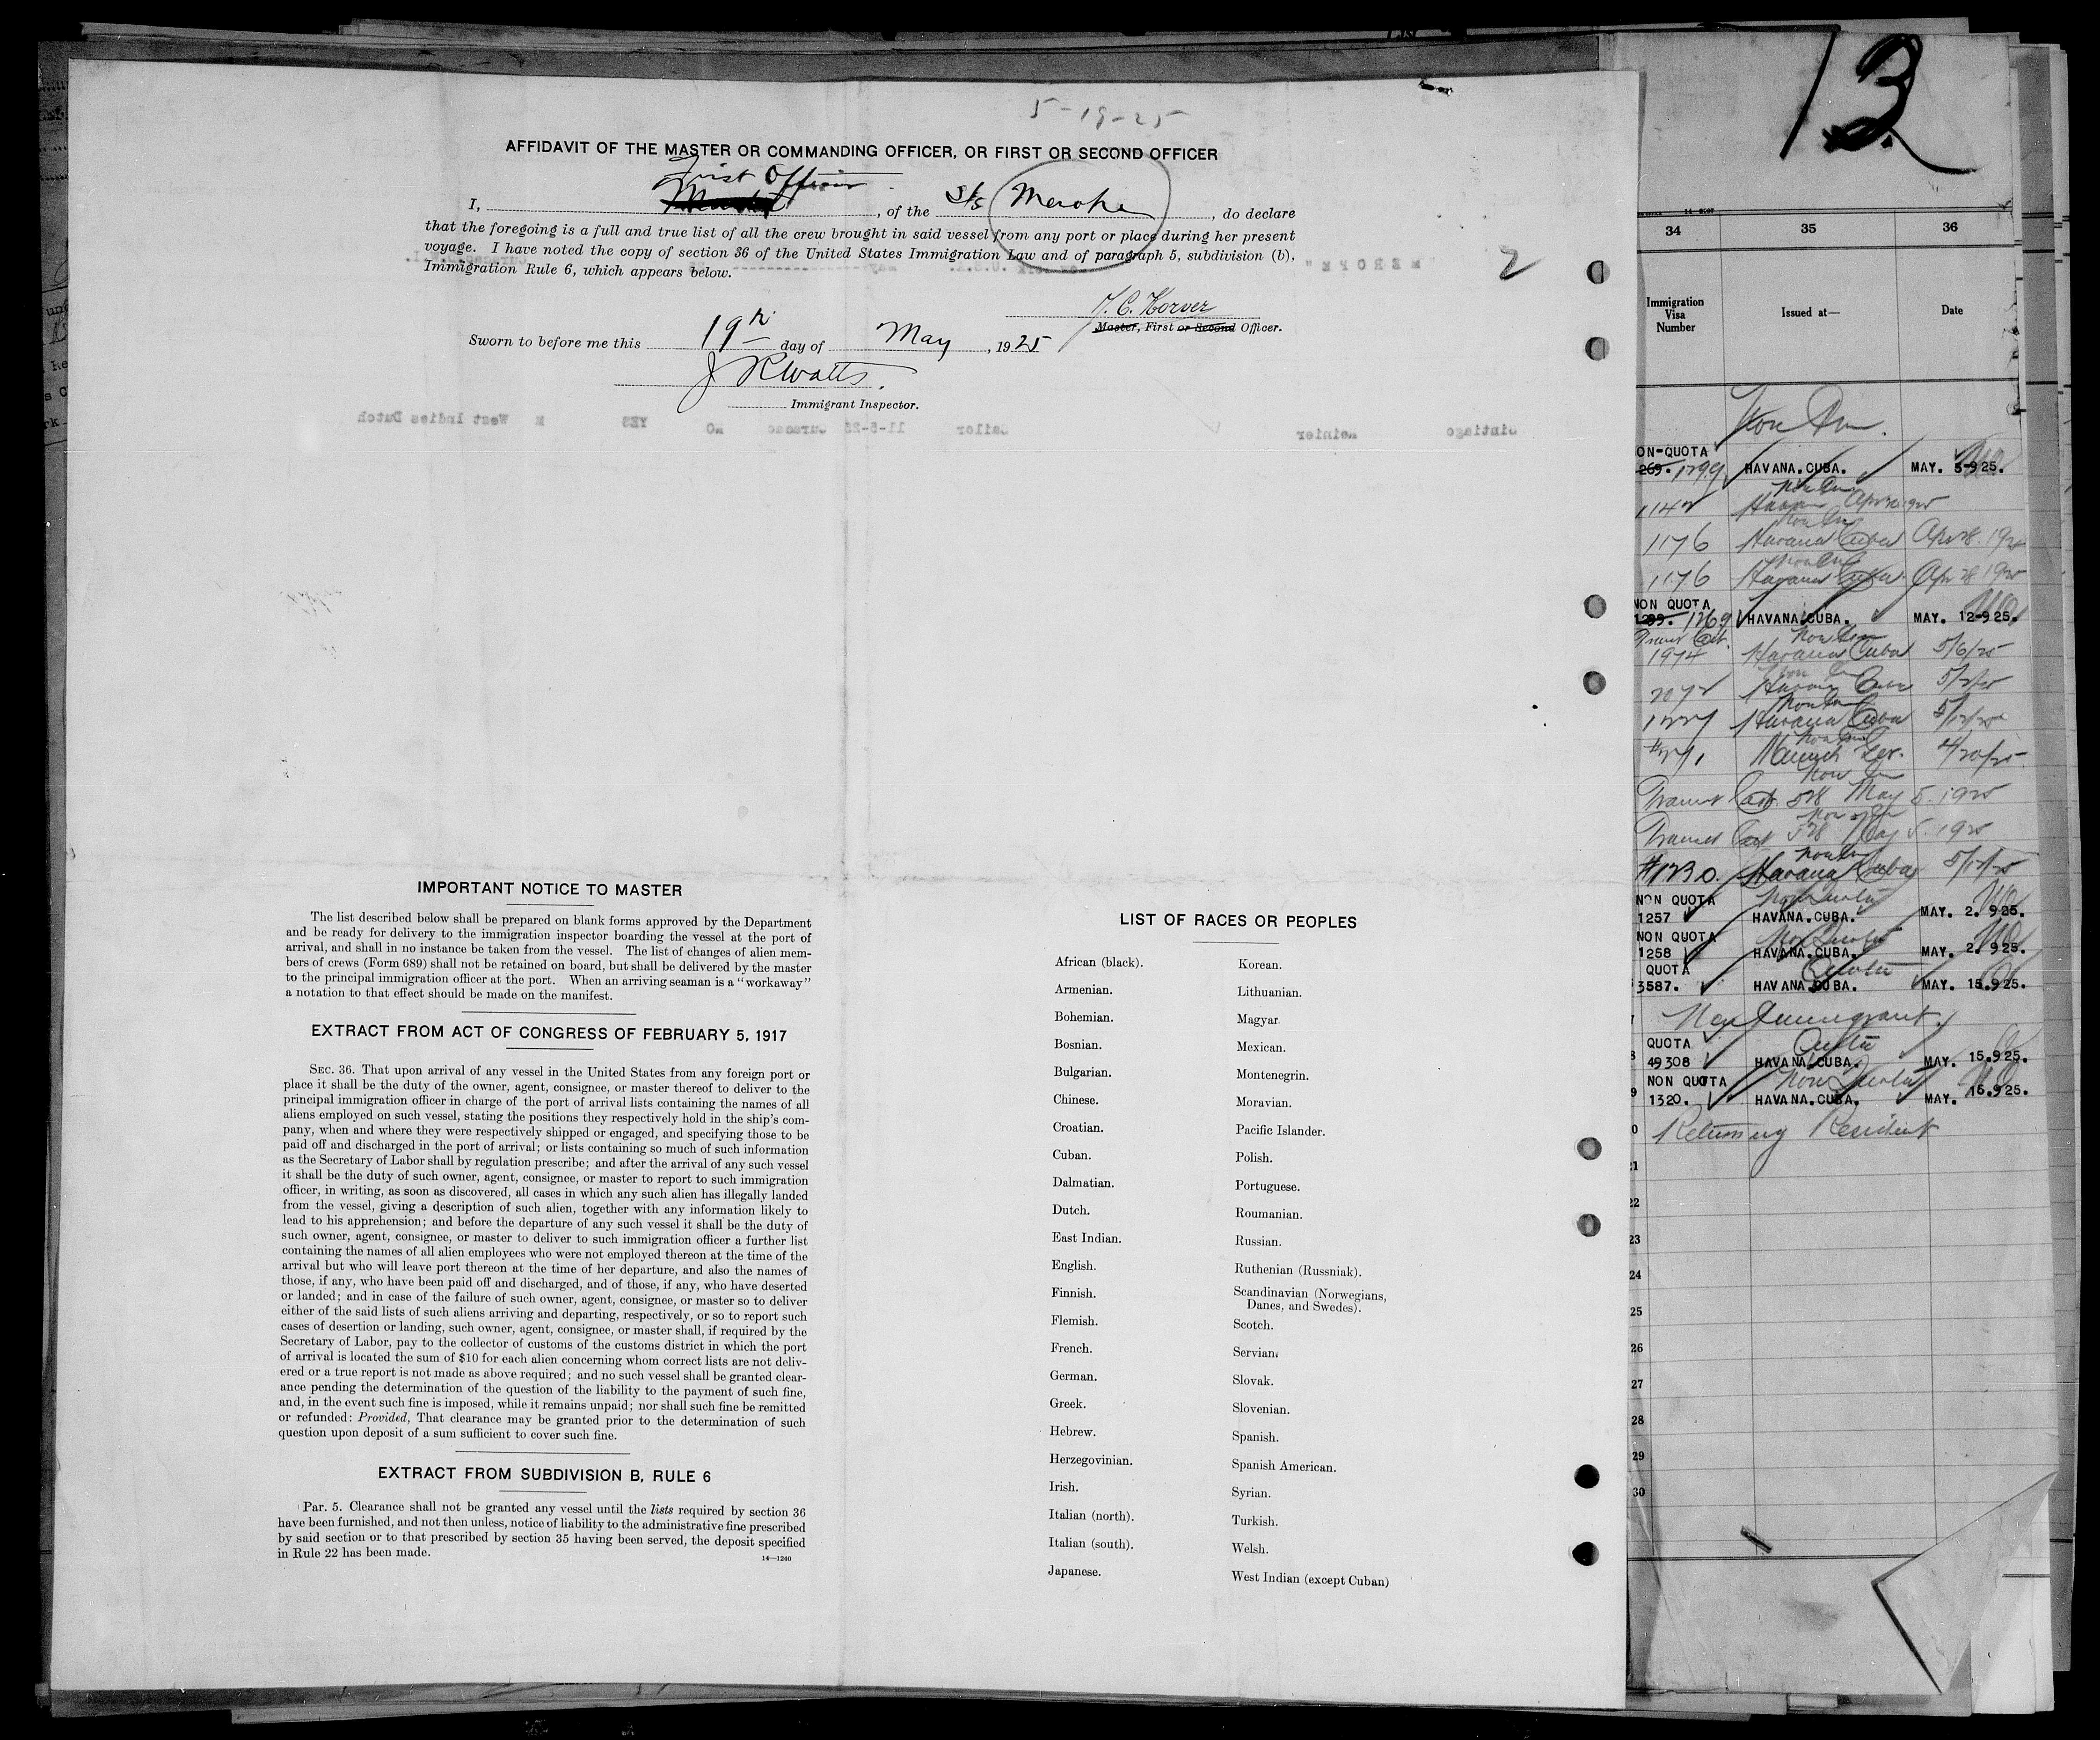 13
5-19-25
AFFIDAVIT OF THE MASTER OR COMMANDING OFFICER, OR FIRST OR SECOND OFFICER
First Officer
I, Master, of the S/S Merope, do declare
that the foregoing is a full and true list of all the crew brought in said vessel from any port or place during her present
voyage. I have noted the copy of section 36 of the United States Immigration Law and of paragraph 5, subdivision (b),
Immigration Rule 6, which appears below.
2
"MEROPE"
Master, First or Second Officer.
Sworn to before me this 19th day of May, 1925
J R Watts.
Immigrant Inspector.
Sintiago Reinier Sailor 11-8-25 Curacao NO YES M West Indies Dutch
IMPORTANT NOTICE TO MASTER
The list described below shall be prepared on blank forms approved by the Department
and be ready for delivery to the immigration inspector boarding the vessel at the port of
arrival, and shall in no instance be taken from the vessel. The list of changes of alien mem-
bers of crews (Form 689) shall not be retained on board, but shall be delivered by the master
to the principal immigration officer at the port. When an arriving seaman is a "workaway"
a notation to that effect should be made on the manifest.
EXTRACT FROM ACT OF CONGRESS OF FEBRUARY 5, 1917
SEC. 36. That upon arrival of any vessel in the United States from any foreign port or
place it shall be the duty of the owner, agent, consignee, or master thereof to deliver to the
principal immigration officer in charge of the port of arrival lists containing the names of all
aliens employed on such vessel, stating the positions they respectively hold in the ship's com-
pany, when and where they were respectively shipped or engaged, and specifying those to be
paid off and discharged in the port of arrival; or lists containing so much of such information
as the Secretary of Labor shall by regulation prescribe; and after the arrival of any such vessel
it shall be the duty of such owner, agent, consignee, or master to report to such immigration
officer, in writing, as soon as discovered, all cases in which any such alien has illegally landed
from the vessel, giving a description of such alien, together with any information likely to
lead to his apprehension; and before the departure of any such vessel it shall be the duty of
such owner, agent, consignee, or master to deliver to such immigration officer a further list
containing the names of all alien employees who were not employed thereon at the time of the
arrival but who will leave port thereon at the time of her departure, and also the names of
those, if any, who have been paid off and discharged, and of those, if any, who have deserted
or landed; and in case of the failure of such owner, agent, consignee, or master so to deliver
either of the said lists of such aliens arriving and departing, respectively, or so to report such
cases of desertion or landing, such owner, agent, consignee, or master shall, if required by the
Secretary of Labor, pay to the collector of customs of the customs district in which the port
of arrival is located the sum of $10 for each alien concerning whom correct lists are not deliv-
ered or a true report is not made as above required; and no such vessel shall be granted clear-
ance pending the determination of the question of the liability to the payment of such fine,
and, in the event such fine is imposed, while it remains unpaid; nor shall such fine be remitted
or refunded: Provided, That clearance may be granted prior to the determination of such
question upon deposit of a sum sufficient to cover such fine.
EXTRACT FROM SUBDIVISION B, RULE 6
Par. 5. Clearance shall not be granted any vessel until the lists required by section 36
have been furnished, and not then unless, notice of liability to the administrative fine prescribed
by said section or to that prescribed by section 35 having been served, the deposit specified
in Rule 22 has been made.
14—1240
LIST OF RACES OR PEOPLES
African (black).
Armenian.
Bohemian.
Bosnian.
Bulgarian.
Chinese.
Croatian.
Cuban.
Dalmatian.
Dutch.
East Indian.
English.
Finnish.
Flemish.
French.
German.
Greek.
Hebrew.
Herzegovinian.
Irish.
Italian (north).
Italian (south).
Japanese.
Korean.
Lithuanian.
Magyar
Mexican.
Montenegrin.
Moravian.
Pacific Islander.
Polish.
Portuguese.
Roumanian.
Russian.
Ruthenian (Russniak).
Scandinavian (Norwegians,
Danes, and Swedes).
Scotch.
Servian.
Slovak.
Slovenian.
Spanish.
Spanish American.
Syrian.
Turkish.
Welsh.
West Indian (except Cuban)
34 35 36
Immigration
Visa
Number
Issued at—
Date
ON-QUOTA
269. 1299 HAVANA.CUBA. MAY. 5-925.
1142 Apr 30 1925
1176 Havana Cuba Apr 28. 192
1176 Havana Cuba. Apr 28 1925
NON QUOTA
1299. 1269 HAVANA.CUBA. MAY. 12-925.
1974 Havana Cuba 5/6/25
2072 Havana Cuba
1227 Havana Cuba 5/12/25
Munich Ger. 4/20/25
Transit Cert. 528 May 5. 1925
Transit Cert 528 May 5. 1925
#1230. Havana Cuba 5/12/25
NON QUOTA Non Quota
1257 HAVANA.CUBA. MAY. 2. 925.
NON QUOTA Non Quota
1258 HAVANA.CUBA. MAY. 2. 925.
QUOTA Quota
3587. HAVANA CUBA. MAY. 15.925.
Non Immigrant.
QUOTA Quota
49308 HAVANA CUBA. MAY. 15.925.
NON QUOTA Non Quota
1320. HAVANA.CUBA. MAY. 15.925.
Returning Resident
21
22
23
24
25
26
27
28
29
30